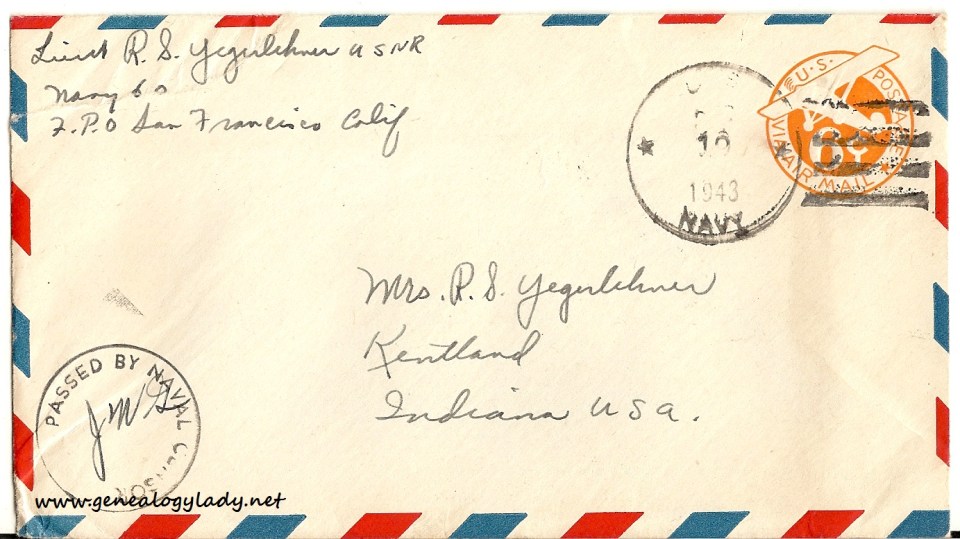 Lieut R. S. Yegerlehner USNR
Navy 60
F.P.O San Francisco Calif
U.S. POSTAGE
VIA AIR MAIL
6¢
10
1943
NAVY
Mrs. R. S. Yegerlehner
Kentland
Indiana U S A.
PASSED BY NAVAL CENSOR
JMG
www.genealogylady.net